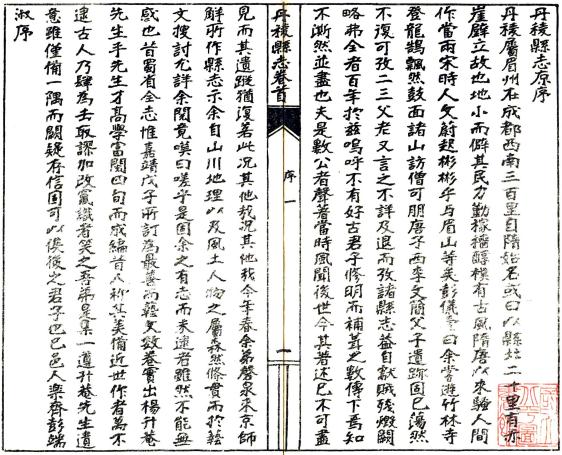 丹稜縣志原序
丹稜屬眉州在成都西南三百里自隋始名或曰以縣北二十里有赤
崖壁立故也地小而僻其民力勤樑牆醇樸有古風隋唐以來騷人間
作當兩宋時人文蔚起彬彬乎與眉山等矣彭儀臺曰余嘗遊竹林寺
登龍鵠飄然鼓面諸山訪僧可朋唐子西李文簡父子遺跡固已蕩然
不復可攷二三父老又言之不詳及退而攷諸縣志益自獻賊殘燬闕
略弗全者百年於茲嗚呼不有好古君子修明而補葺之數傳下焉知
不澌然並盡也夫是數公者聲著當時風聞後世今其著述已不可盡
丹稜縣志卷首
序
一
見而其遺蹤猶復若此況其他哉況其他哉今年春余弟磬泉来京師
解所作縣志示余自山川地理以及風土人物之屬森然條貫而於藝
文搜討尤詳余閱竟嘆曰嗟乎是固余之有志而未逮者雖然不能無
感也昔蜀省全志惟嘉靖戊子所訂為最善而藝文数卷實出楊升菴
先生手先生才高學富閱四旬而成編首人稱其美備近世作者萬不
逮古人乃肆為去取謬加改竄識者笑之吾弟是集一遵升菴先生遺
意雖僅備一隅而闕疑存信固可以俟後之君子也已邑人樂齋彭端
淑序